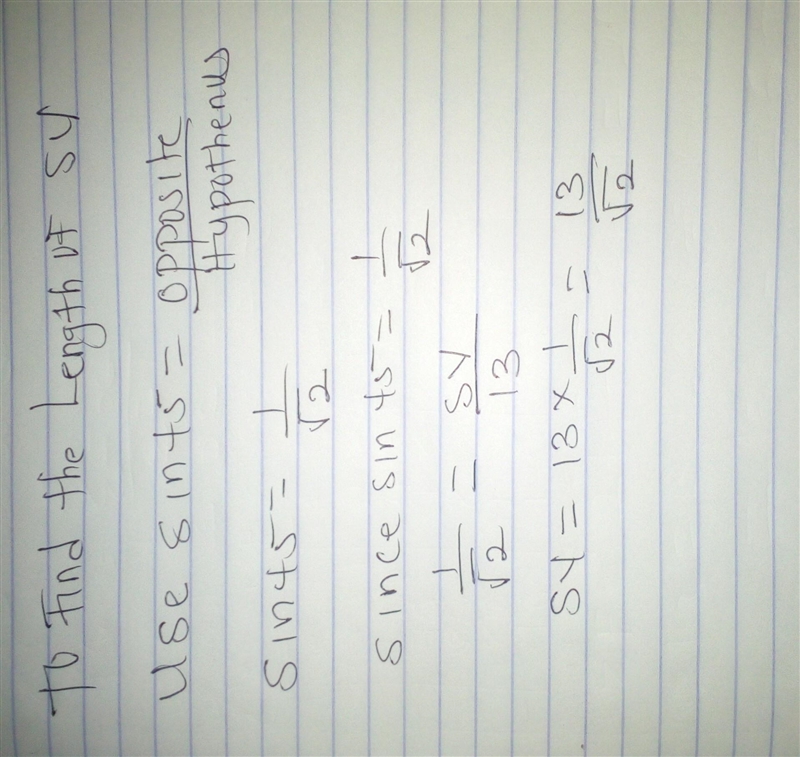 To Find the Length of SY
Use sin45 = opposite/Hypothenus
sin45 = 1/√2
since sin 45 = 1/√2
1/√2 = SY/13
SY = 13 × 1/√2 = 13/√2